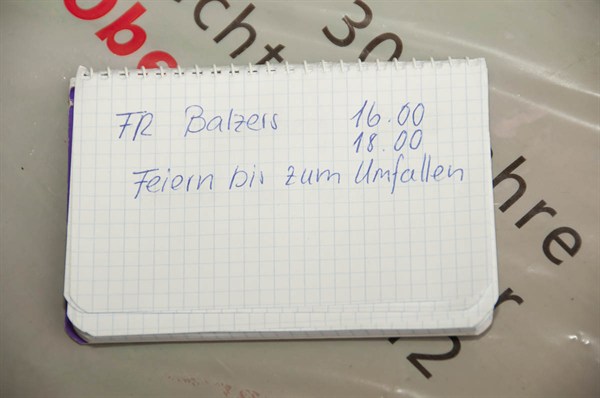 30
icht
obe
FR Balzers 16.00
18.00
Feiern bis zum Umfallen
hre